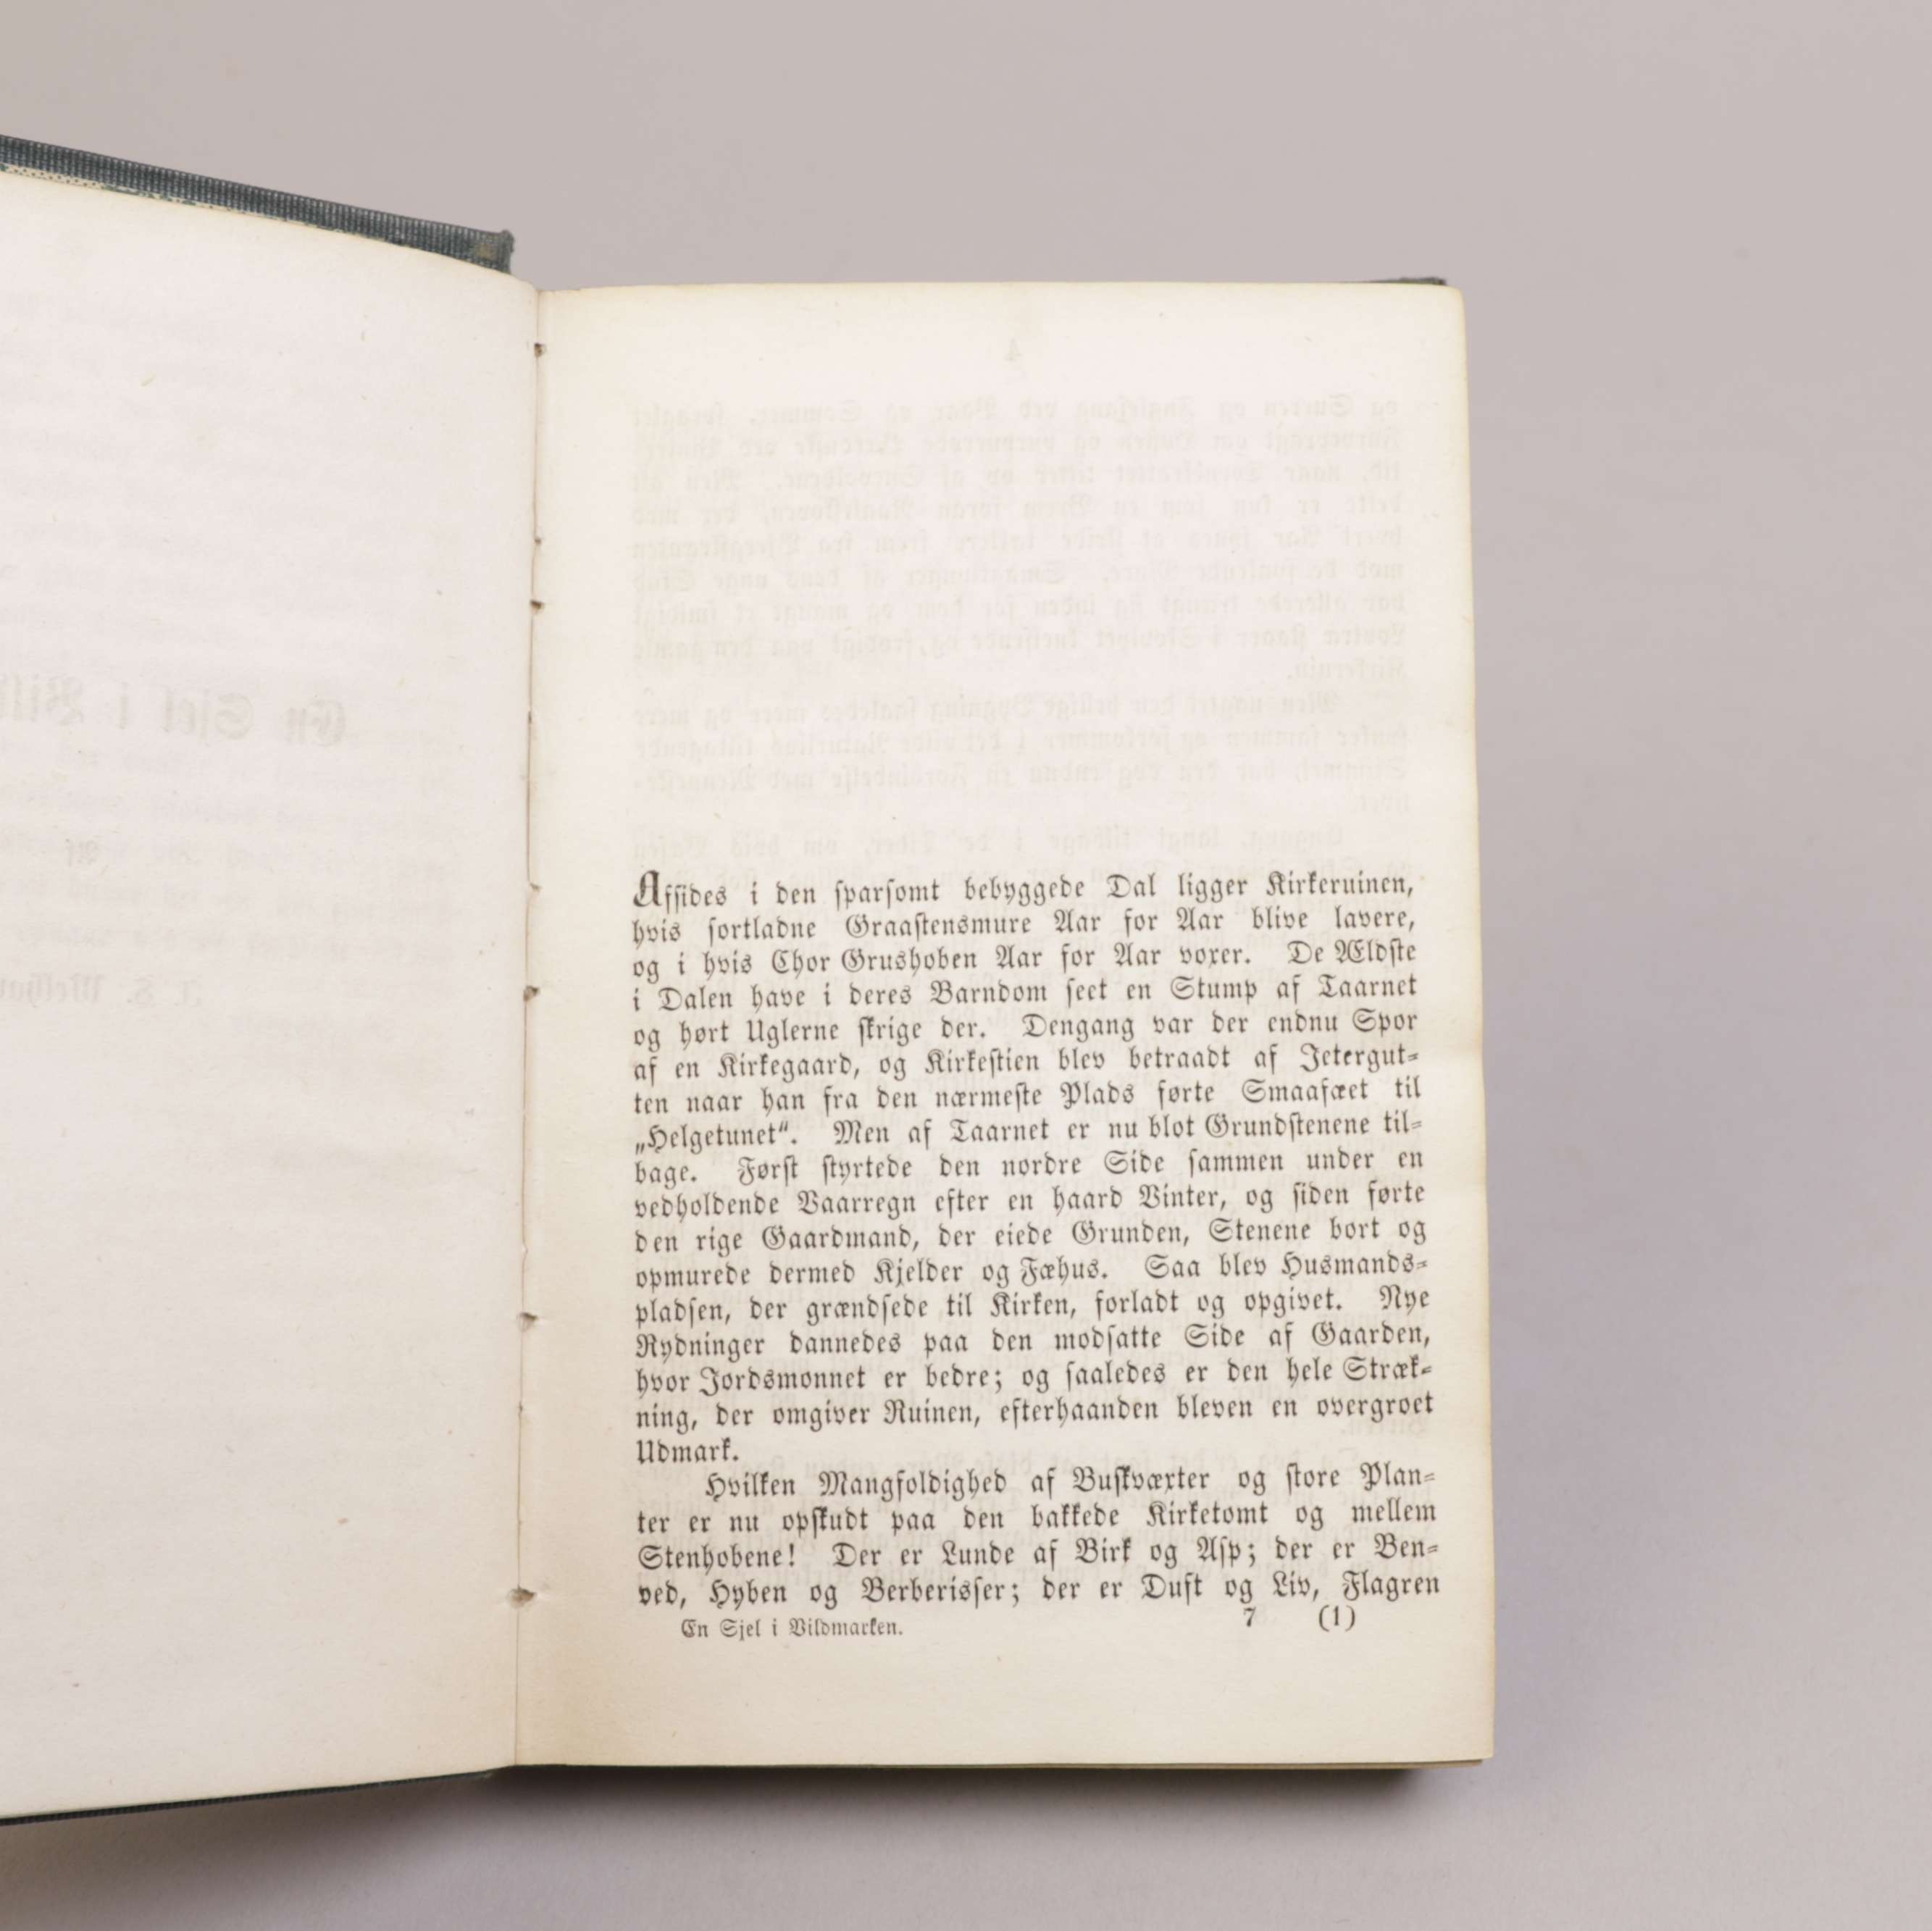 Afsides i den sparsomt bebyggede Dal ligger Kirkeruinen,
hvis sortladne Graastensmure Aar for Aar blive lavere,
og i hvis Chor Grushoben Aar for Aar voxer. De Ældste
i Dalen have i deres Barndom seet en Stump af Taarnet
og hørt Uglerne skrige der. Dengang var der endnu Spor
af en Kirkegaard, og Kirkestien blev betraadt af Jetergut-
ten naar han fra den nærmeste Plads førte Smaafæet til
„Helgetunet“. Men af Taarnet er nu blot Grundstenene til-
bage. Først styrtede den nordre Side sammen under en
vedholdende Vaarregn efter en haard Vinter, og siden førte
den rige Gaardmand, der eiede Grunden, Stenene bort og
opmurede dermed Kjelder og Fæhus. Saa blev Husmands-
pladsen, der grændsede til Kirken, forladt og opgivet. Nye
Rydninger dannedes paa den modsatte Side af Gaarden,
hvor Jordsmonnet er bedre; og saaledes er den hele Stræk-
ning, der omgiver Ruinen, efterhaanden bleven en overgroet
Udmark.
Hvilken Mangfoldighed af Buskvæxter og store Plan-
ter er nu opskudt paa den bakkede Kirketomt og mellem
Stenhobene! Der er Lunde af Birk og Asp; der er Ben-
ved, Hyben og Berberisser; der er Duft og Liv, Flagren
En Sjel i Vildmarken. 7 (1)